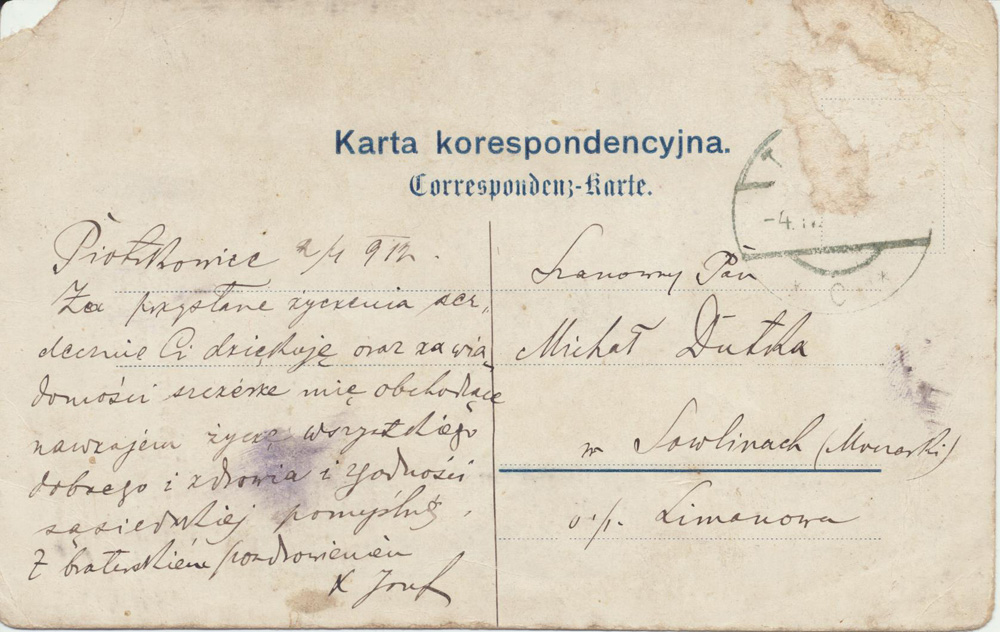 Karta korespondencyjna.
Correspondenz-Karte.
Piotrkowice 2/1 912.
Za przysłane życzenia ser„
decznie Ci dziękuję oraz za wia„
domości szczérze mię obchodzące
nawzajem życzę wszystkiégo
dobrego i zdrowia i zgodności
sąsiedzkiéj pomyślnéj,
Z braterskiém pozdrowieniem
X Józef
Szanowny Pan
Michał Dutka
w Sowlinach (Mocarski)
o.p. Limanowa
-4.